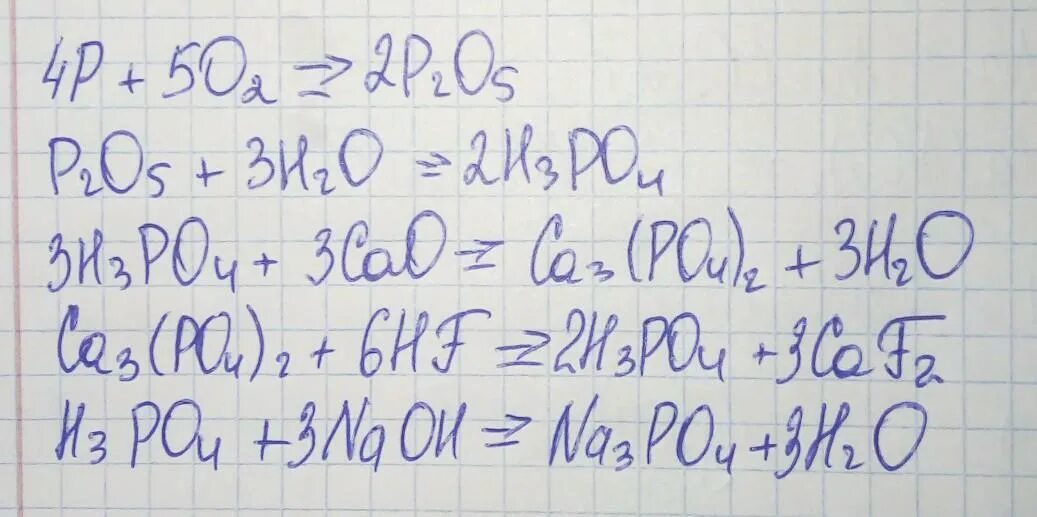 4P + 5O₂ ⇒ 2P₂O₅
P₂O₅ + 3H₂O ⇒ 2H₃PO₄
3H₃PO₄ + 3CaO = Ca₃(PO₄)₂ + 3H₂O
Ca₃(PO₄)₂ + 6HF ⇒ 2H₃PO₄ + 3CaF₂
H₃PO₄ + 3NaOH ⇒ Na₃PO₄ + 3H₂O